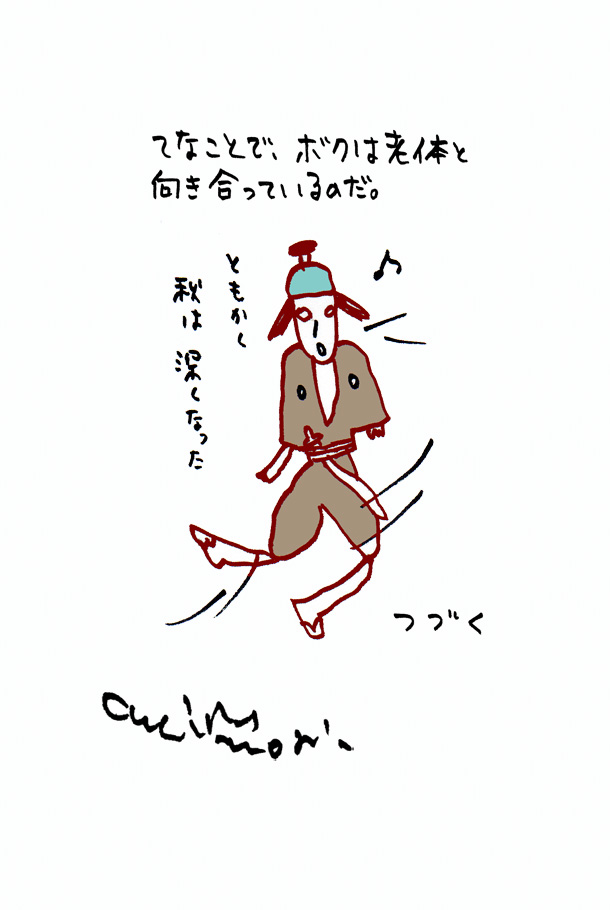 てなことで、ボクは老体と
向き合っているのだ。
ともかく
秋は深くなった
つづく